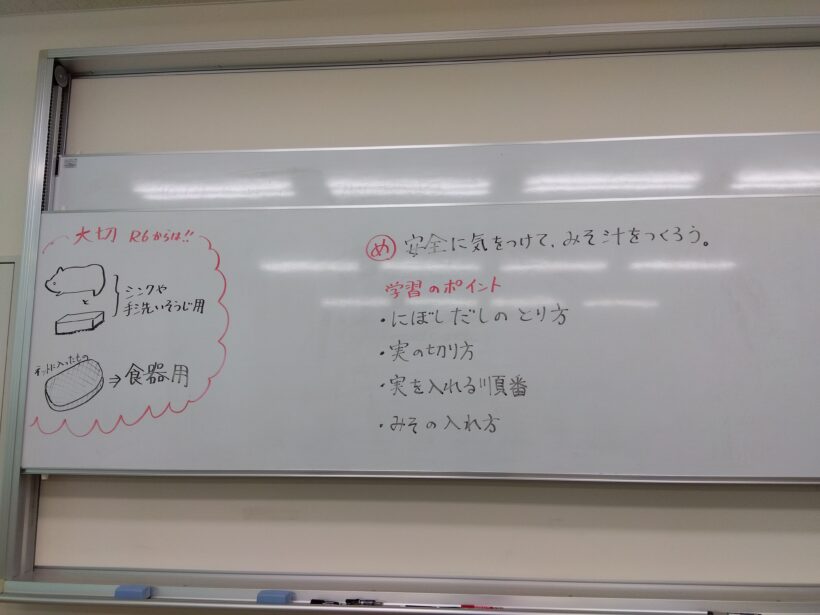 大切 R6からは!!
シンクや
と
手洗いそうじ用
ネットに入ったもの
⇒食器用
め 安全に気をつけて、みそ汁をつくろう。
学習のポイント
・にぼしだしのとり方
・実の切り方
・実を入れる順番
・みその入れ方